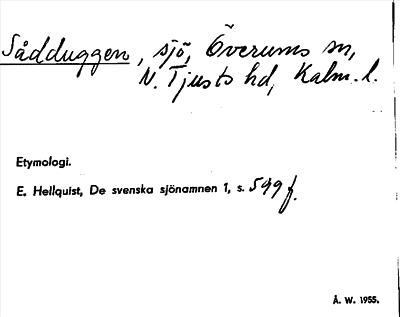 Sådduggen, sjö, Överums sn,
N. Tjusts hd, Kalm. l.
Etymologi.
E. Hellquist, De svenska sjönamnen 1, s. 599 f.
Å. W. 1955.